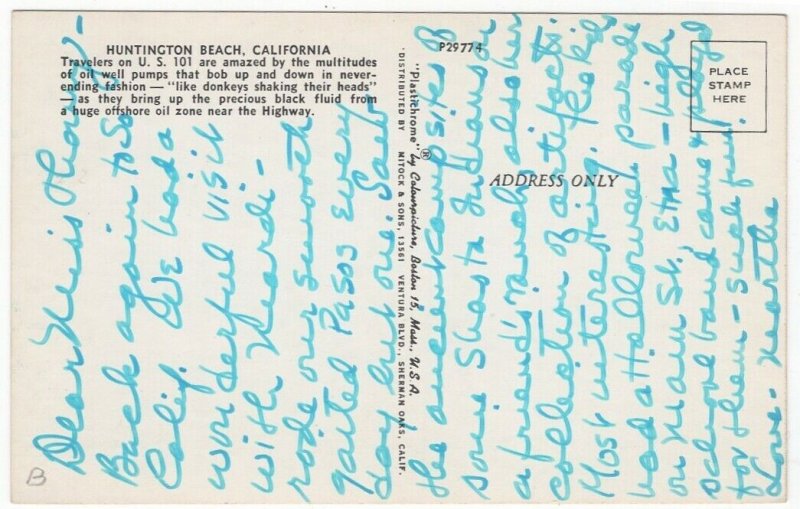 HUNTINGTON BEACH, CALIFORNIA
Travelers on U. S. 101 are amazed by the multitudes
of oil well pumps that bob up and down in never-
ending fashion — "like donkeys shaking their heads"
— as they bring up the precious black fluid from
a huge offshore oil zone near the Highway.
P29774
"Plastichrome"® by Colourpicture, Boston 15, Mass., U.S.A.
DISTRIBUTED BY MITOCK & SONS, 13561 VENTURA BLVD., SHERMAN OAKS, CALIF.
PLACE
STAMP
HERE
ADDRESS ONLY
Dear Miss
Back again to So.
Calif. We had a
wonderful visit
with
rode our smooth
gaited Pasos every
day but one. Saw
the ancient camp sites of
some Shasta Indians on
a friend's ranch, also her
collection of artifacts.
Most interesting. The kids
had a Halloween parade
on Main St. Etna - high
school band came & played
for them - such fun.
Love - Martha
B